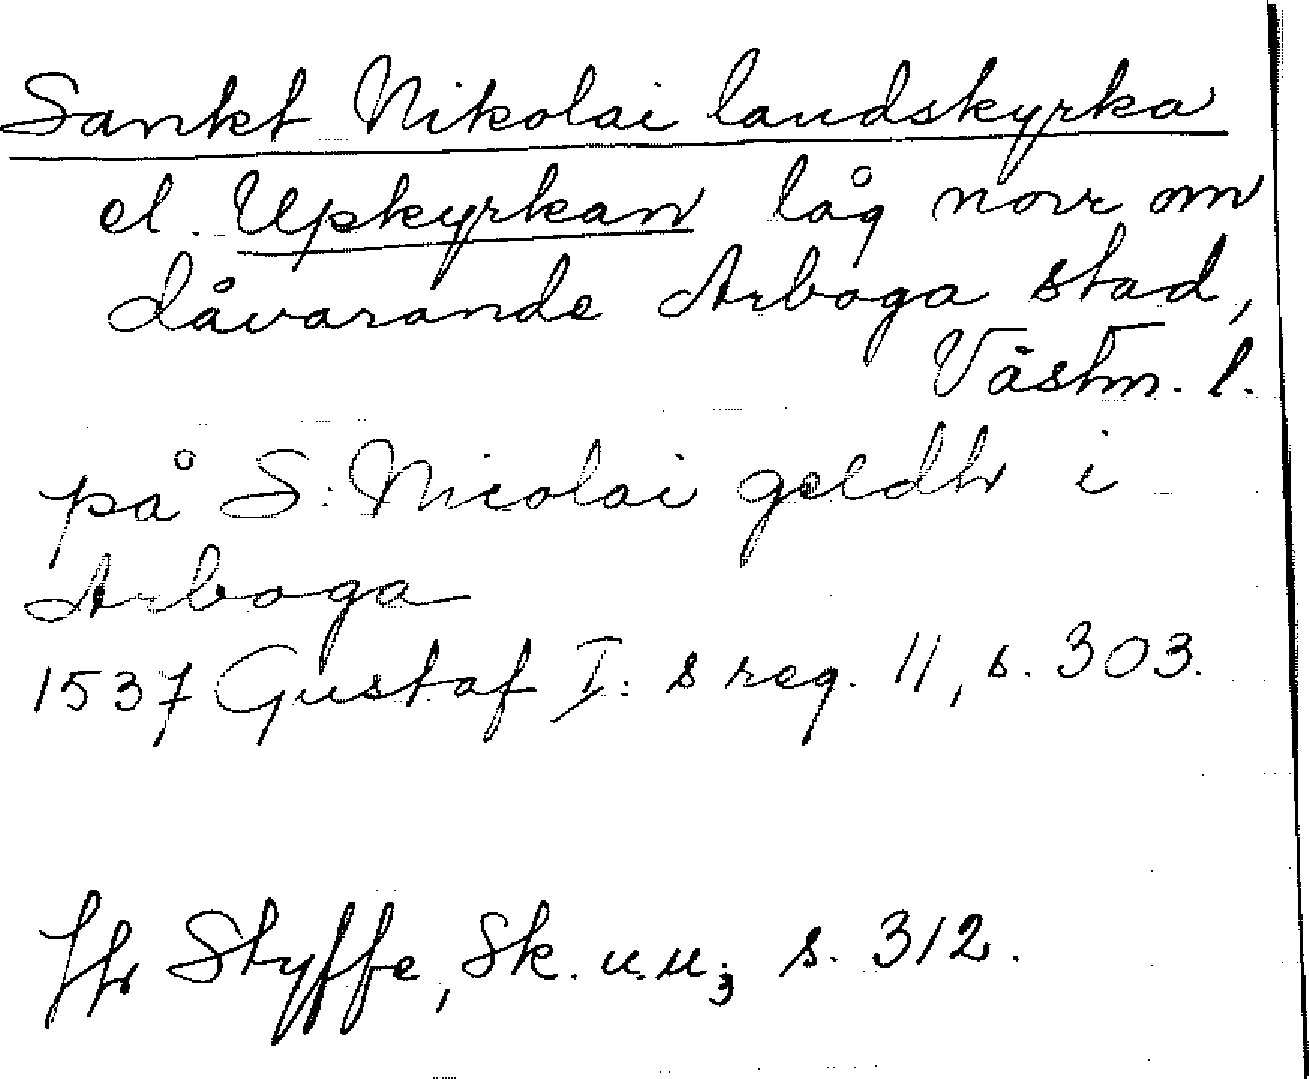 Sankt Nikolai landskyrka
el. Upkyrkan låg norr om
dåvarande Arboga stad,
Västm. l.
på S: Nicolai geldh i
Arboga
1537 Gustaf I: s reg. 11, s. 303.
Jfr Styffe, Sk. u. u₃ s. 312.